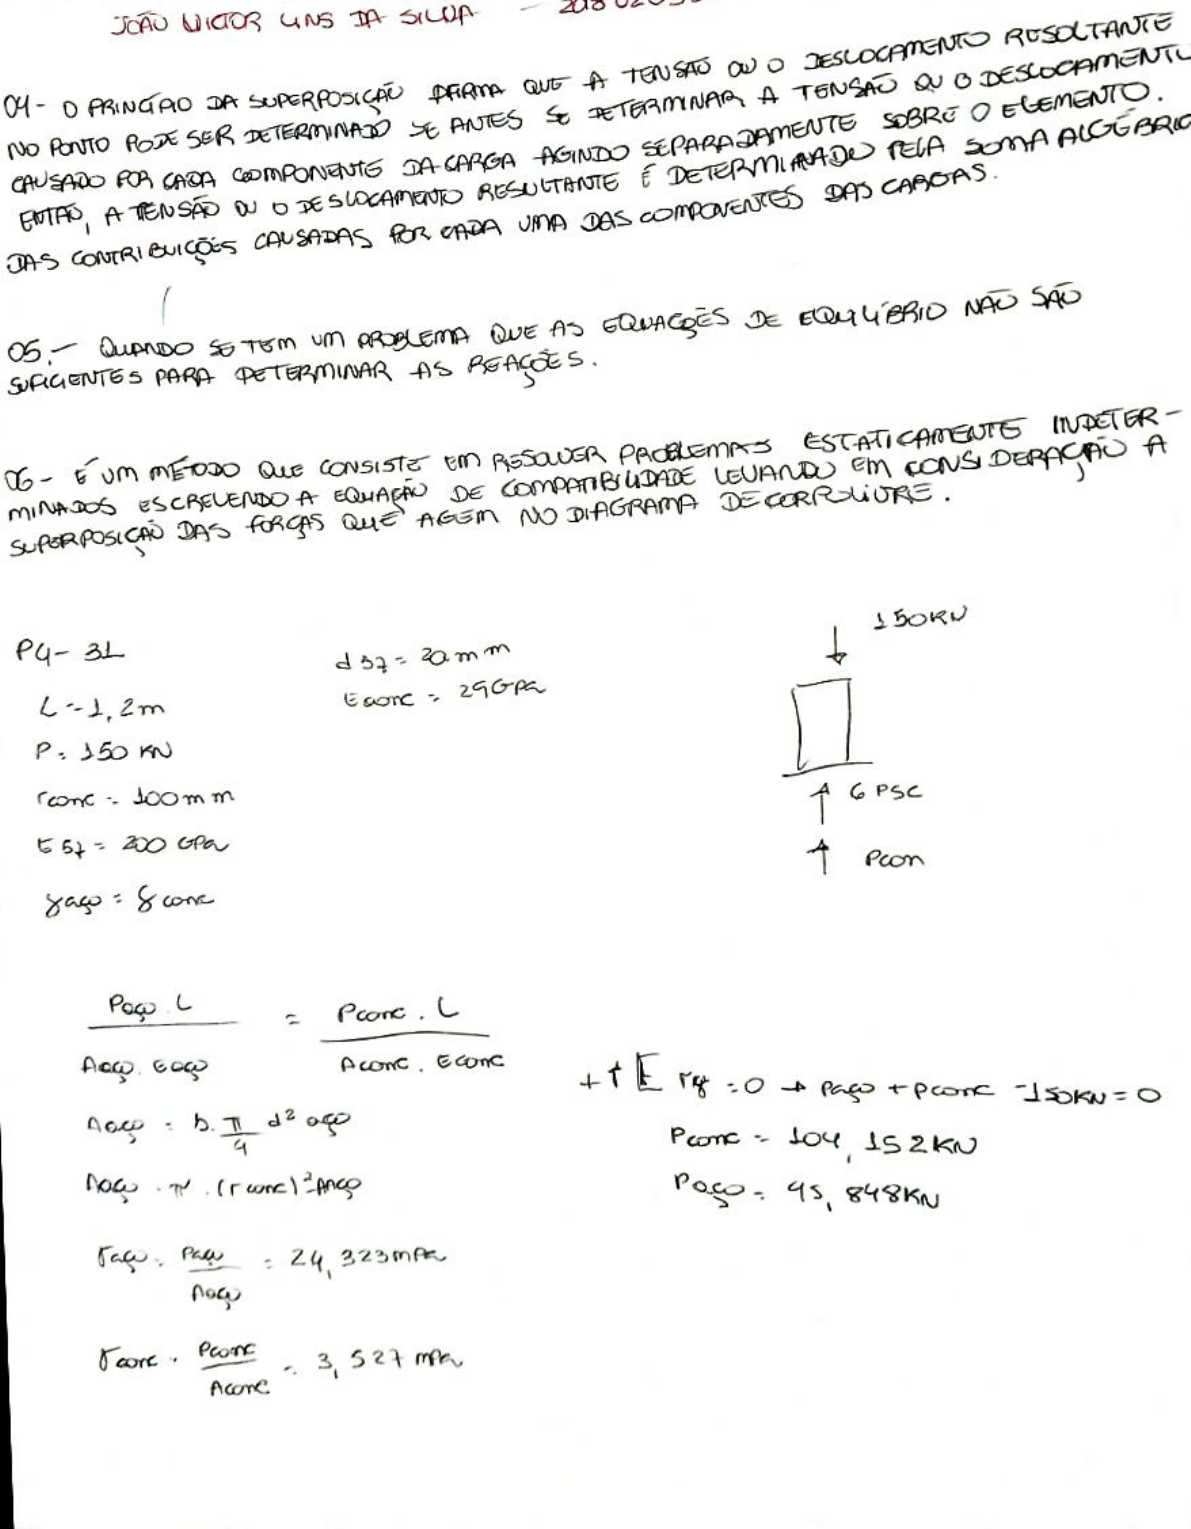 JOÃO VICTOR LINS DA SILVA -
04- O PRINCÍPIO DA SUPERPOSIÇÃO AFIRMA QUE A TENSÃO OU O DESLOCAMENTO RESULTANTE
NO PONTO PODE SER DETERMINADO SE ANTES SE DETERMINAR A TENSÃO OU O DESLOCAMENTO
CAUSADO POR CADA COMPONENTE DA CARGA AGINDO SEPARADAMENTE SOBRE O ELEMENTO.
ENTÃO, A TENSÃO OU O DESLOCAMENTO RESULTANTE É DETERMINADO PELA SOMA ALGÉBRIC
DAS CONTRIBUIÇÕES CAUSADAS POR CADA UMA DAS COMPONENTES DAS CARGAS.
05.- QUANDO SE TEM UM PROBLEMA QUE AS EQUAÇÕES DE EQUILÍBRIO NÃO SÃO
SUFICIENTES PARA DETERMINAR AS REAÇÕES.
06- É UM MÉTODO QUE CONSISTE EM RESOLVER PROBLEMAS ESTATICAMENTE INDETER-
MINADOS ESCREVENDO A EQUAÇÃO DE COMPATIBILIDADE LEVANDO EM CONSIDERAÇÃO A
SUPERPOSIÇÃO DAS FORÇAS QUE AGEM NO DIAGRAMA DE CORPO LIVRE.
P4- 31
L = 1,2m
P = 150 KN
rconc = 100mm
Est = 200 GPa
δaço = δconc
dst = 20mm
Econc = 29GPa
150KN
6 PSC
Pcon
Paço . L / Aaço . Eaço = Pconc . L / Aconc . Econc
Aaço = 5. π/4 d² aço
Aaço = π . (rconc)² - Aaço
σaço = Paço / Aaço = 24,323MPa
σconc = Pconc / Aconc = 3,527 MPa
+↑ Σ Fy = 0 → Paço + Pconc - 150KN = 0
Pconc = 104,152KN
Paço = 45,848KN